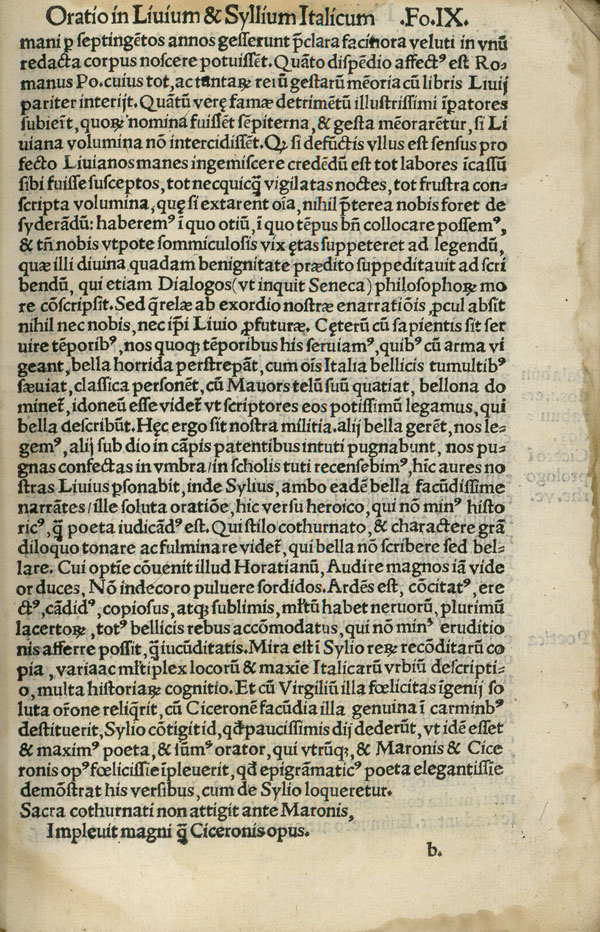 Oratio in Liuium & Syllium Italicum .Fo.IX.
mani ꝑ septingẽtos annos gesserunt p̃clara facinora veluti in vnũ
redacta corpus noscere potuisset. Quãto dispẽdio affectꝰ est Ro-
manus Po. cuius tot, ac tantaꝝ rerũ gestarũ mẽoria cũ libris Liuij
pariter interijt. Quãtũ verę famæ detrimẽtũ illustrissimi ĩpatores
subierĩt, quoꝝ nomina fuissẽt sẽpiterna, & gesta mẽorarẽtur, si Li
uiana volumina nõ intercidissẽt. Qꝫ si defũctis vllus est sensus pro
fecto Liuianos manes ingemiscere credẽdũ est tot labores ĩcassũ
sibi fuisse susceptos, tot necquicq̃ vigilatas noctes, tot frustra con-
scripta volumina, quę si extarent oĩa, nihil p̃terea nobis foret de
syderãdũ: haberemꝰ ĩ quo otiũ, ĩ quo tẽpus bñ collocare possemꝰ,
& tñ nobis vtpote sommiculosis vix ętas suppeteret ad legendũ,
quæ illi diuina quadam benignitate prædito suppeditauit ad scri
bendũ, qui etiam Dialogos (vt inquit Seneca) philosophoꝝ mo
re cõscripsit. Sed q̃relæ ab exordio nostræ enarratiõis ꝓcul absit
nihil nec nobis, nec ip̃i Liuio ꝓfuturæ. Cęterũ cũ sapientis sit ser
uire tẽporibꝰ, nos quoqꝫ tẽporibus his seruiamꝰ, quibꝰ cũ arma vi
geant, bella horrida perstrepãt, cum oĩs Italia bellicis tumultibꝰ
sæuiat, classica personẽt, cũ Mauors telũ suũ quatiat, bellona do
minet᷑, idoneũ esse videt᷑ vt scriptores eos potissimũ legamus, qui
bella describũt. Hęc ergo sit nostra militia. alij bella gerẽt, nos le-
gemꝰ, alij sub dio in cãpis patentibus intuti pugnabunt, nos pu-
gnas confectas in vmbra/ in scholis tuti recensebimꝰ, hĩc aures no
stras Liuius ꝑsonabit, inde Sylius, ambo eadẽ bella facũdissime
narrãtes/ ille soluta oratiõe, hic versu heroico, qui nõ minꝰ histo
ricꝰ, q̃ poeta iudicãdꝰ est. Qui stilo cothurnato, & charactere grã
diloquo tonare ac fulminare videt᷑, qui bella nõ scribere sed bel-
lare. Cui optĩe cõuenit illud Horatianũ, Audire magnos iã vide
or duces, Nõ indecoro puluere sordidos. Ardẽs est, cõcitatꝰ, ere
ctꝰ, cãdidꝰ, copiosus, atqꝫ sublimis, ml̃tũ habet neruorũ, plurimũ
lacertoꝝ, totꝰ bellicis rebus accõmodatus, qui nõ minꝰ eruditio
nis afferre possit, q̃ iucũditatis. Mira est ĩ Sylio reꝝ recõditarũ co
pia, varia ac ml̃tiplex locorũ & maxĩe Italicarũ vrbiũ descripti-
o, multa historiaꝝ cognitio. Et cũ Virgiliũ illa fœlicitas ĩgenij so
luta or̃one reliq̃rit, cũ Ciceronẽ facũdia illa genuina ĩ carminbꝰ
destituerit, Sylio cõtigit id, qd̃ paucissimis dij dederũt, vt idẽ esset
& maximꝰ poeta, & sum̃ꝰ orator, qui vtrũqꝫ, & Maronis & Cice
ronis opꝰ fœlicissĩe ĩpleuerit, qd̃ epigrãmaticꝰ poeta elegantissĩe
demõstrat his versibus, cum de Sylio loqueretur.
Sacra cothurnati non attigit ante Maronis,
Impleuit magni q̃ Ciceronis opus.
b.